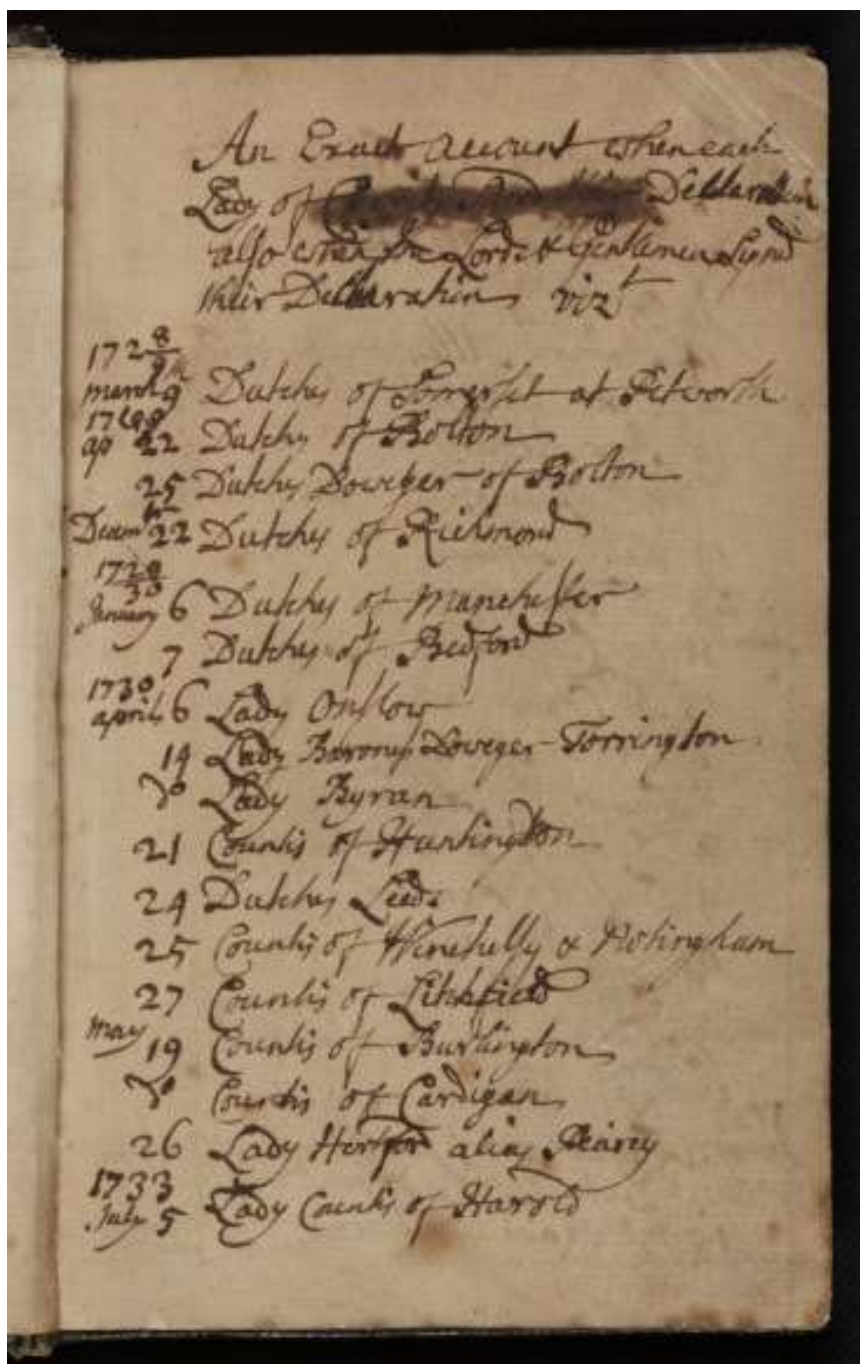 An Exact account when each
Lady of Declaration
also when the Lords & Gentlemen Signd
their Declaration vizt
172 8/9
march 9 Dutches of Somerset at Petworth
ap 22 Dutches of Bolton
25 Dutches Doweger of Bolton
Decembr 22 Dutches of Richmond
1729/30
January 6 Dutches of Manchester
7 Dutches of Bedford
1730
april 6 Lady Onslow
14 Lady Barones Doweger Torrington
Do Lady Byran
21 Countis of Huntington
24 Dutches Leeds
25 Countis of Winchelly & Notingham
27 Countis of Litchfield
may 19 Countis of Burlington
Do Countis of Cardigan
26 Lady Hertford alias Pearcy
1733
July 5 Lady Countis of Harold